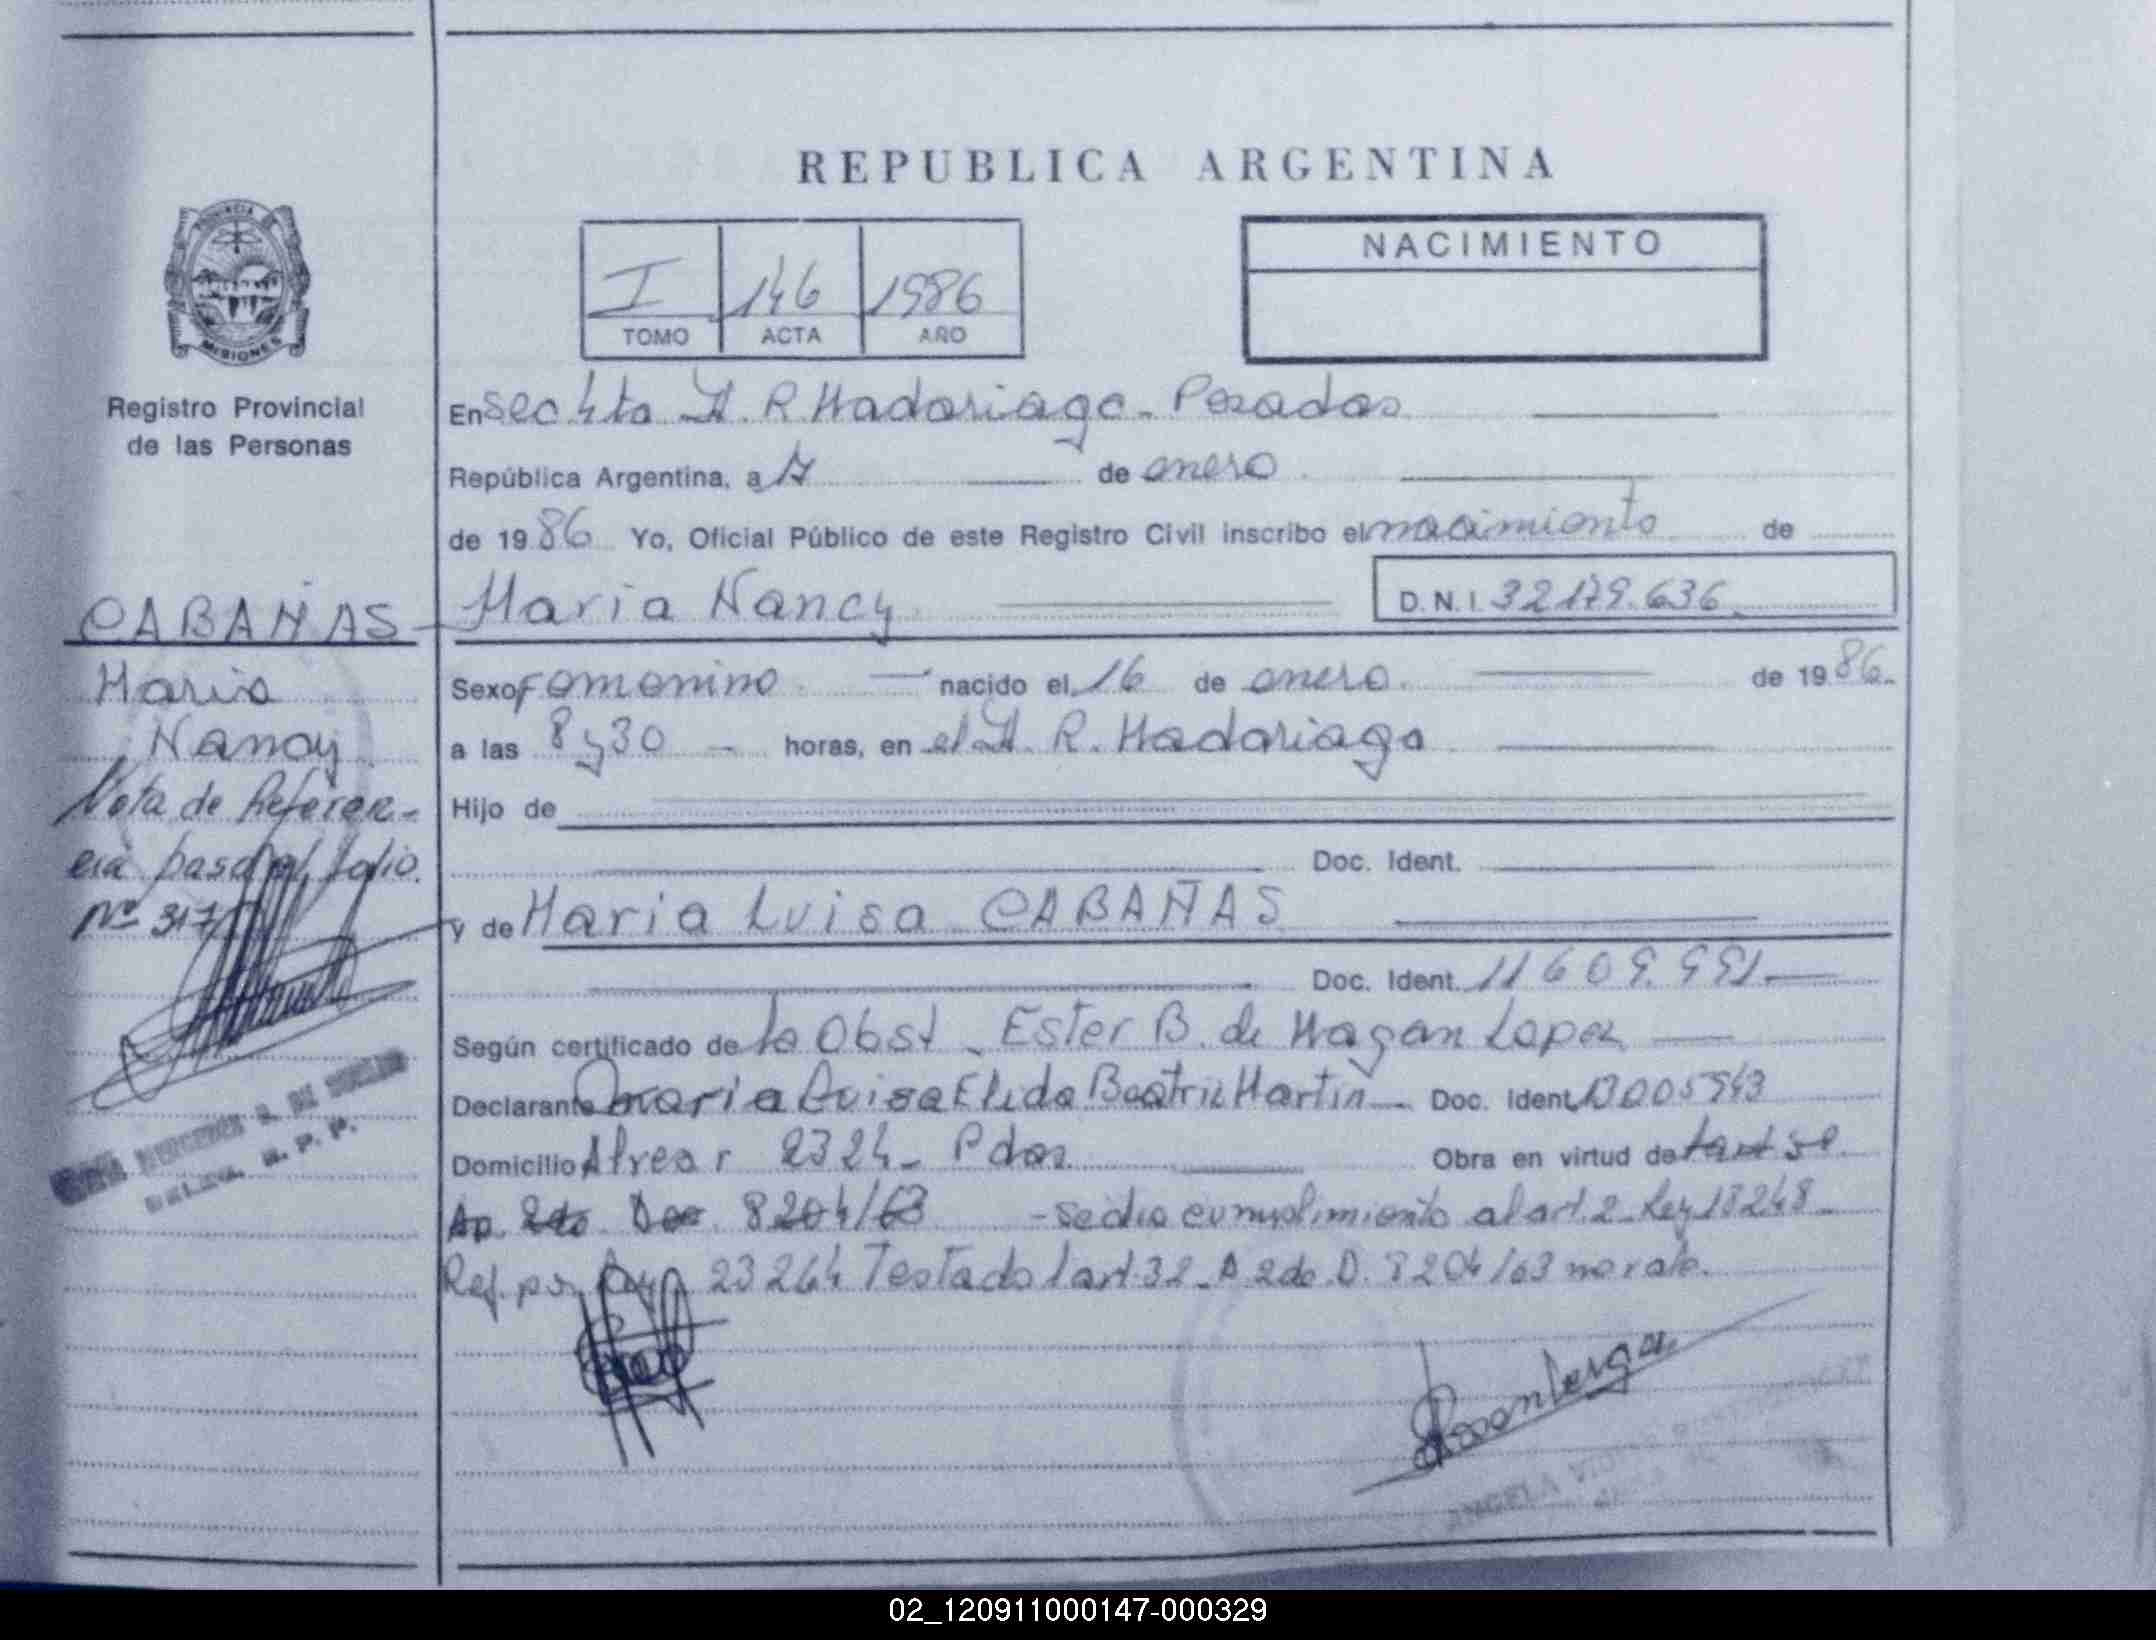 REPUBLICA ARGENTINA
PROVINCIA DE
MISIONES
Registro Provincial
de las Personas
I 146 1986
TOMO ACTA AÑO
NACIMIENTO
En secc 4ta H. R Madariaga - Posadas
República Argentina, a 17 de enero
de 19 86 Yo, Oficial Público de este Registro Civil inscribo el nacimiento de
Maria Nancy D.N.I. 32179.636
CABAÑAS
Maria
Nancy
Nota de Referen-
cia pasa al folio
Nº 317
Sexo Femenino nacido el 16 de enero de 19 86.
a las 8 y 30 horas, en el H. R. Madariaga
Hijo de
Doc. Ident.
y de Maria Luisa CABAÑAS
Doc. Ident. 11609.991
Según certificado de la Obst. Ester B. de Magan Lopez
Declarante Maria Luisa Elida Beatriz Martin Doc. Ident. 13005943
Domicilio Alvear 2324 - Pdas Obra en virtud de
Ap. 2do Dec. 8204/63 - se dio cumplimiento al art. 2 - Ley 18248 -
Ref. por Ley 23264 Testado 1 art. 32 - A 2do D. 8204/63 no vale.
ANGELA
02_120911000147-000329